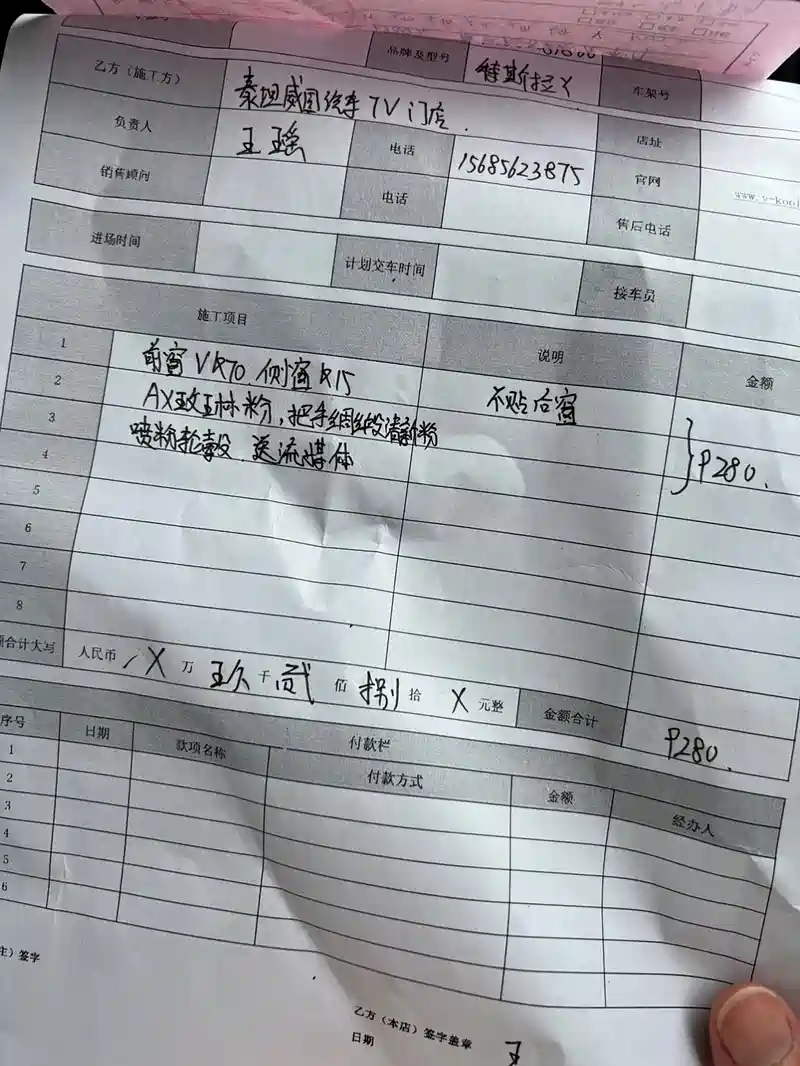 品牌及型号 特斯拉Y 车架号
乙方（施工方） 泰坦威固汽车TV门店 店址
负责人 王瑶 电话 15685623875 官网 www.v-kool
销售顾问 电话 售后电话
进场时间 计划交车时间 接车员
施工项目 说明 金额
1 前窗VK70.侧窗K15
2 AX玫瑰粉，把手 不贴后窗
3 喷粉轮毂.送流媒体 }9280.
4
5
6
7
8
合计大写 人民币 / X 万 玖 千 贰 佰 捌 拾 X 元整 金额合计 9280.
付款栏
序号 日期 款项名称 付款方式 金额 经办人
1
2
3
4
5
6
签字
乙方（本店）签字盖章 王
日期